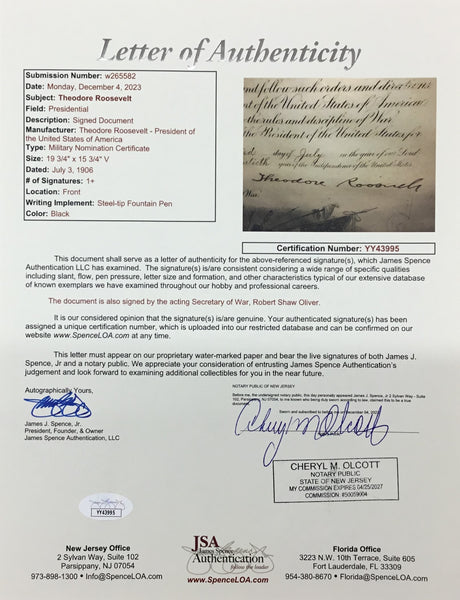 Letter of Authenticity
Submission Number: w265582
Date: Monday, December 4, 2023
Subject: Theodore Roosevelt
Field: Presidential
Description: Signed Document
Manufacturer: Theodore Roosevelt - President of
the United States of America
Type: Military Nomination Certificate
Size: 19 3/4" x 15 3/4" V
Date: July 3, 1906
# of Signatures: 1+
Location: Front
Writing Implement: Steel-tip Fountain Pen
Color: Black
and follow such orders and directions
nt of the United States of America
the rules and discipline of War.
the President of the United States for
day of July in the year of our Lord
of the Independence of the United States.
Theodore Roosevelt
War.
Certification Number: YY43995
This document shall serve as a letter of authenticity for the above-referenced signature(s), which James Spence
Authentication LLC has examined. The signature(s) is/are consistent considering a wide range of specific qualities
including slant, flow, pen pressure, letter size and formation, and other characteristics typical of our extensive database
of known exemplars we have examined throughout our hobby and professional careers.
The document is also signed by the acting Secretary of War, Robert Shaw Oliver.
It is our considered opinion that the signature(s) is/are genuine. Your authenticated signature(s) has/have been
assigned a unique certification number, which is uploaded into our restricted database and can be confirmed on our
website www.SpenceLOA.com at any time.
This letter must appear on our proprietary water-marked paper and bear the live signatures of both James J.
Spence, Jr and a notary public. We appreciate your consideration of entrusting James Spence Authentication's
judgement and look forward to examining additional collectibles for you in the near future.
Autographically Yours,
James J. Spence, Jr.
President, Founder, & Owner
James Spence Authentication, LLC
NOTARY PUBLIC OF NEW JERSEY
Before me, the undersigned notary public, this day personally appeared James J. Spence, Jr 2 Sylvan Way - Suite
102, Parsippany, NJ 07054, to me known who being duly sworn according to law, claimed this to be a true
document.
Sworn and subscribed to before
Cheryl M Olcott
CHERYL M. OLCOTT
NOTARY PUBLIC
STATE OF NEW JERSEY
MY COMMISSION EXPIRES 04/25/2027
COMMISSION: #50059004
YY43995
New Jersey Office
2 Sylvan Way, Suite 102
Parsippany, NJ 07054
973-898-1300 • Info@SpenceLOA.com
JSA
James Spence
Authentication
follow the leader
www.SpenceLOA.com
Florida Office
3223 N.W. 10th Terrace, Suite 605
Fort Lauderdale, FL 33309
954-380-8670 • Florida@SpenceLOA.com